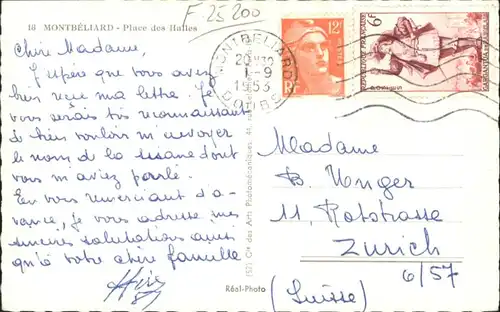 F 25200
18 MONTBÉLIARD - Place des Halles
Chère Madame,
J'espère que vous avez
bien reçu ma lettre. Je
vous serais très reconnaissant
de bien vouloir m'envoyer
le nom de la tisane dont
vous m'aviez parlé.
En vous remerciant d'a-
vance, je vous adresse mes
sincères salutations ainsi
qu'à votre chère famille
MONTBELIARD
1-9
1953
DOUBS
12F
RF
6F
REPUBLIQUE FRANÇAISE
GARGANTUA
Cie des Arts Photomécaniques
Réal-Photo
Madame
B. Unger
11, Rotstrasse
Zurich
6/57
(Suisse)